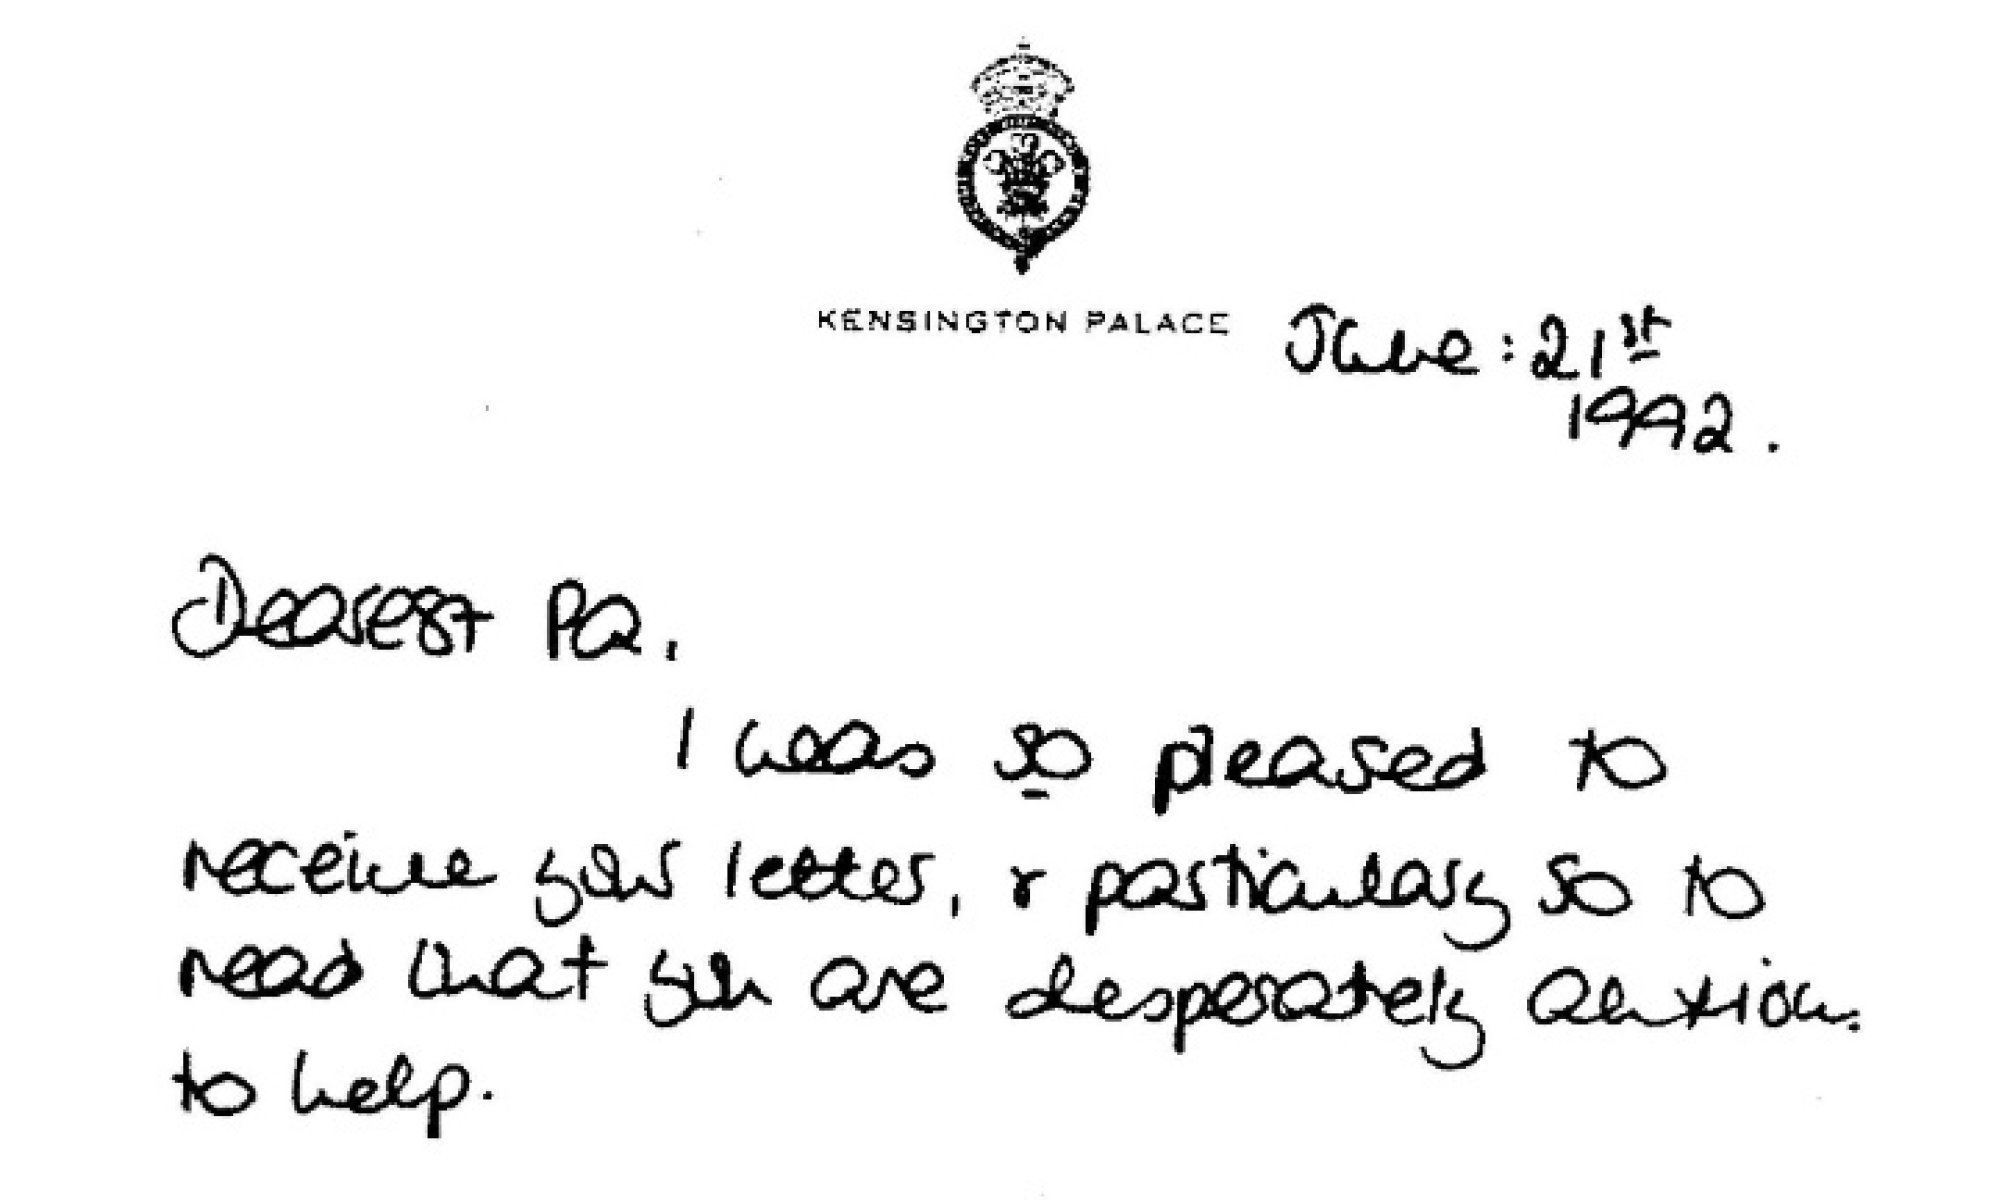 KENSINGTON PALACE
June: 21st
1992.
Dearest Pa,
I was so pleased to
receive your letter, & particulary so to
read that you are desperately
to help.